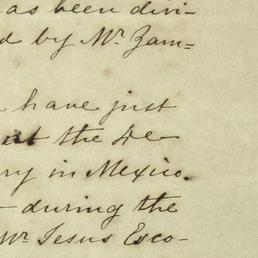 as been divi-
d by Mr. Zam=
have just
at the 4e-
ry in Mexico.
- during the
Mr. Jesus Esco-